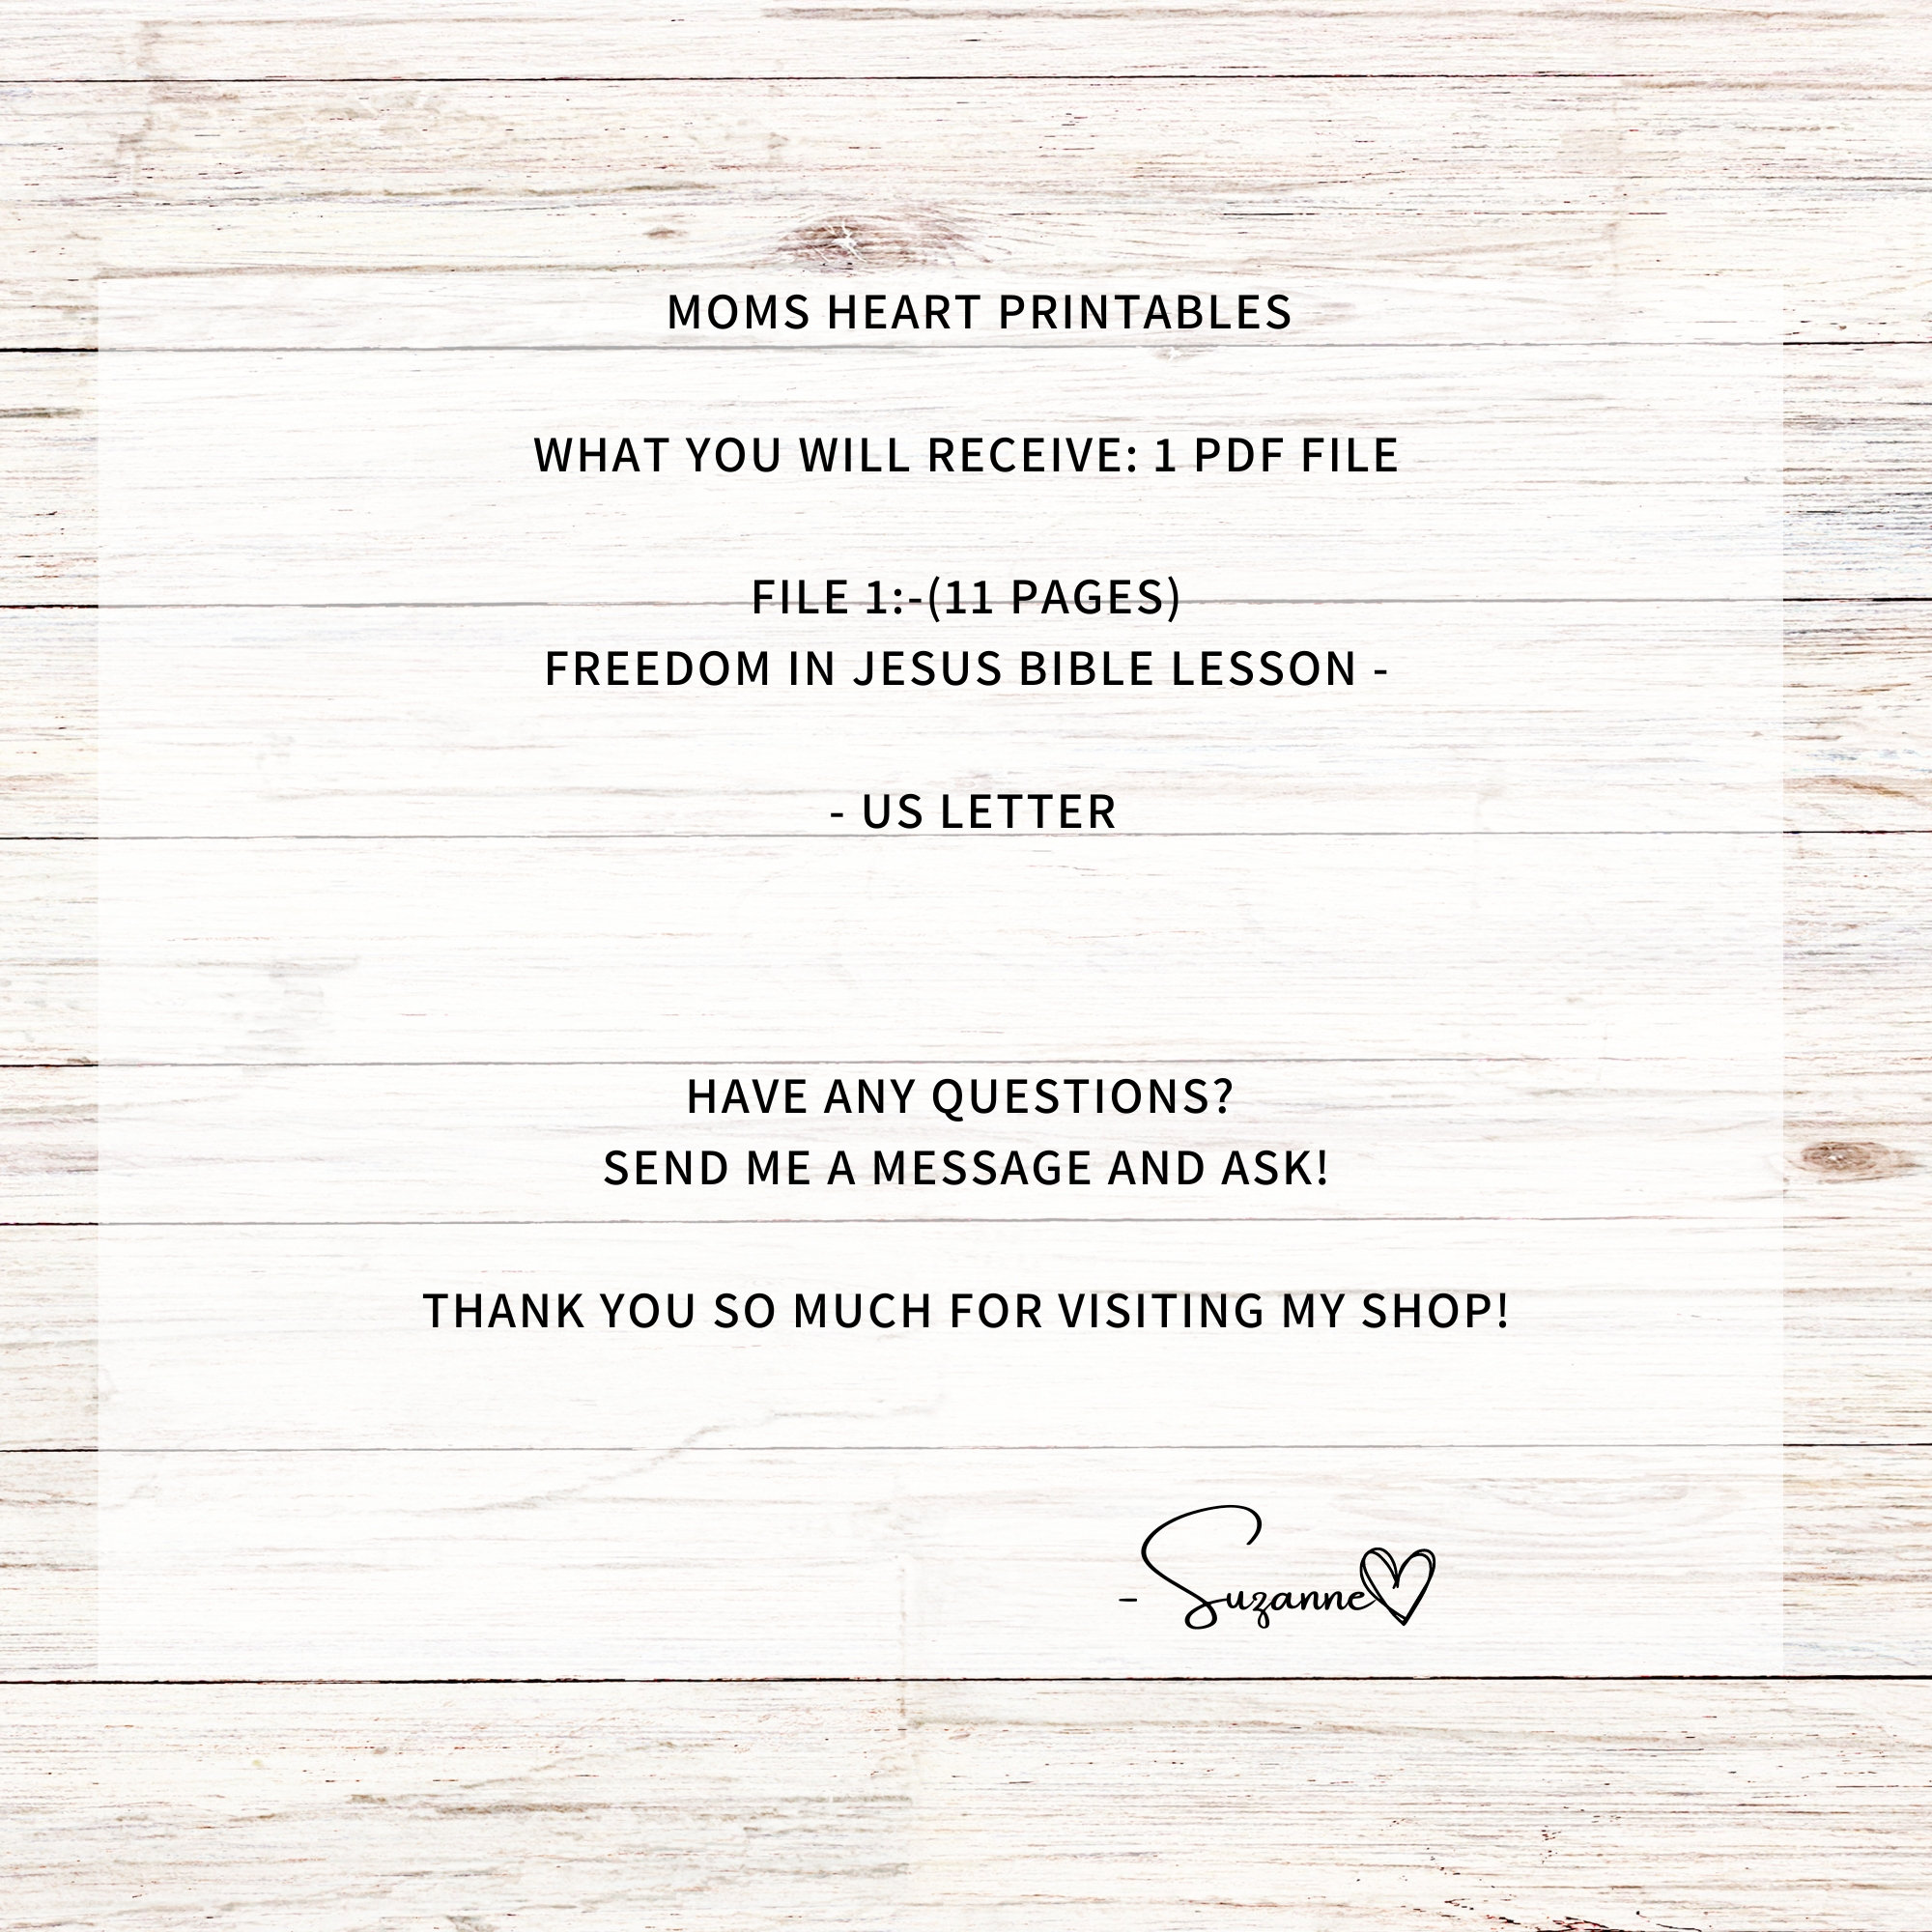 MOMS HEART PRINTABLES
WHAT YOU WILL RECEIVE: 1 PDF FILE
FILE 1:-(11 PAGES)
FREEDOM IN JESUS BIBLE LESSON -
- US LETTER
HAVE ANY QUESTIONS?
SEND ME A MESSAGE AND ASK!
THANK YOU SO MUCH FOR VISITING MY SHOP!
- Suzanne